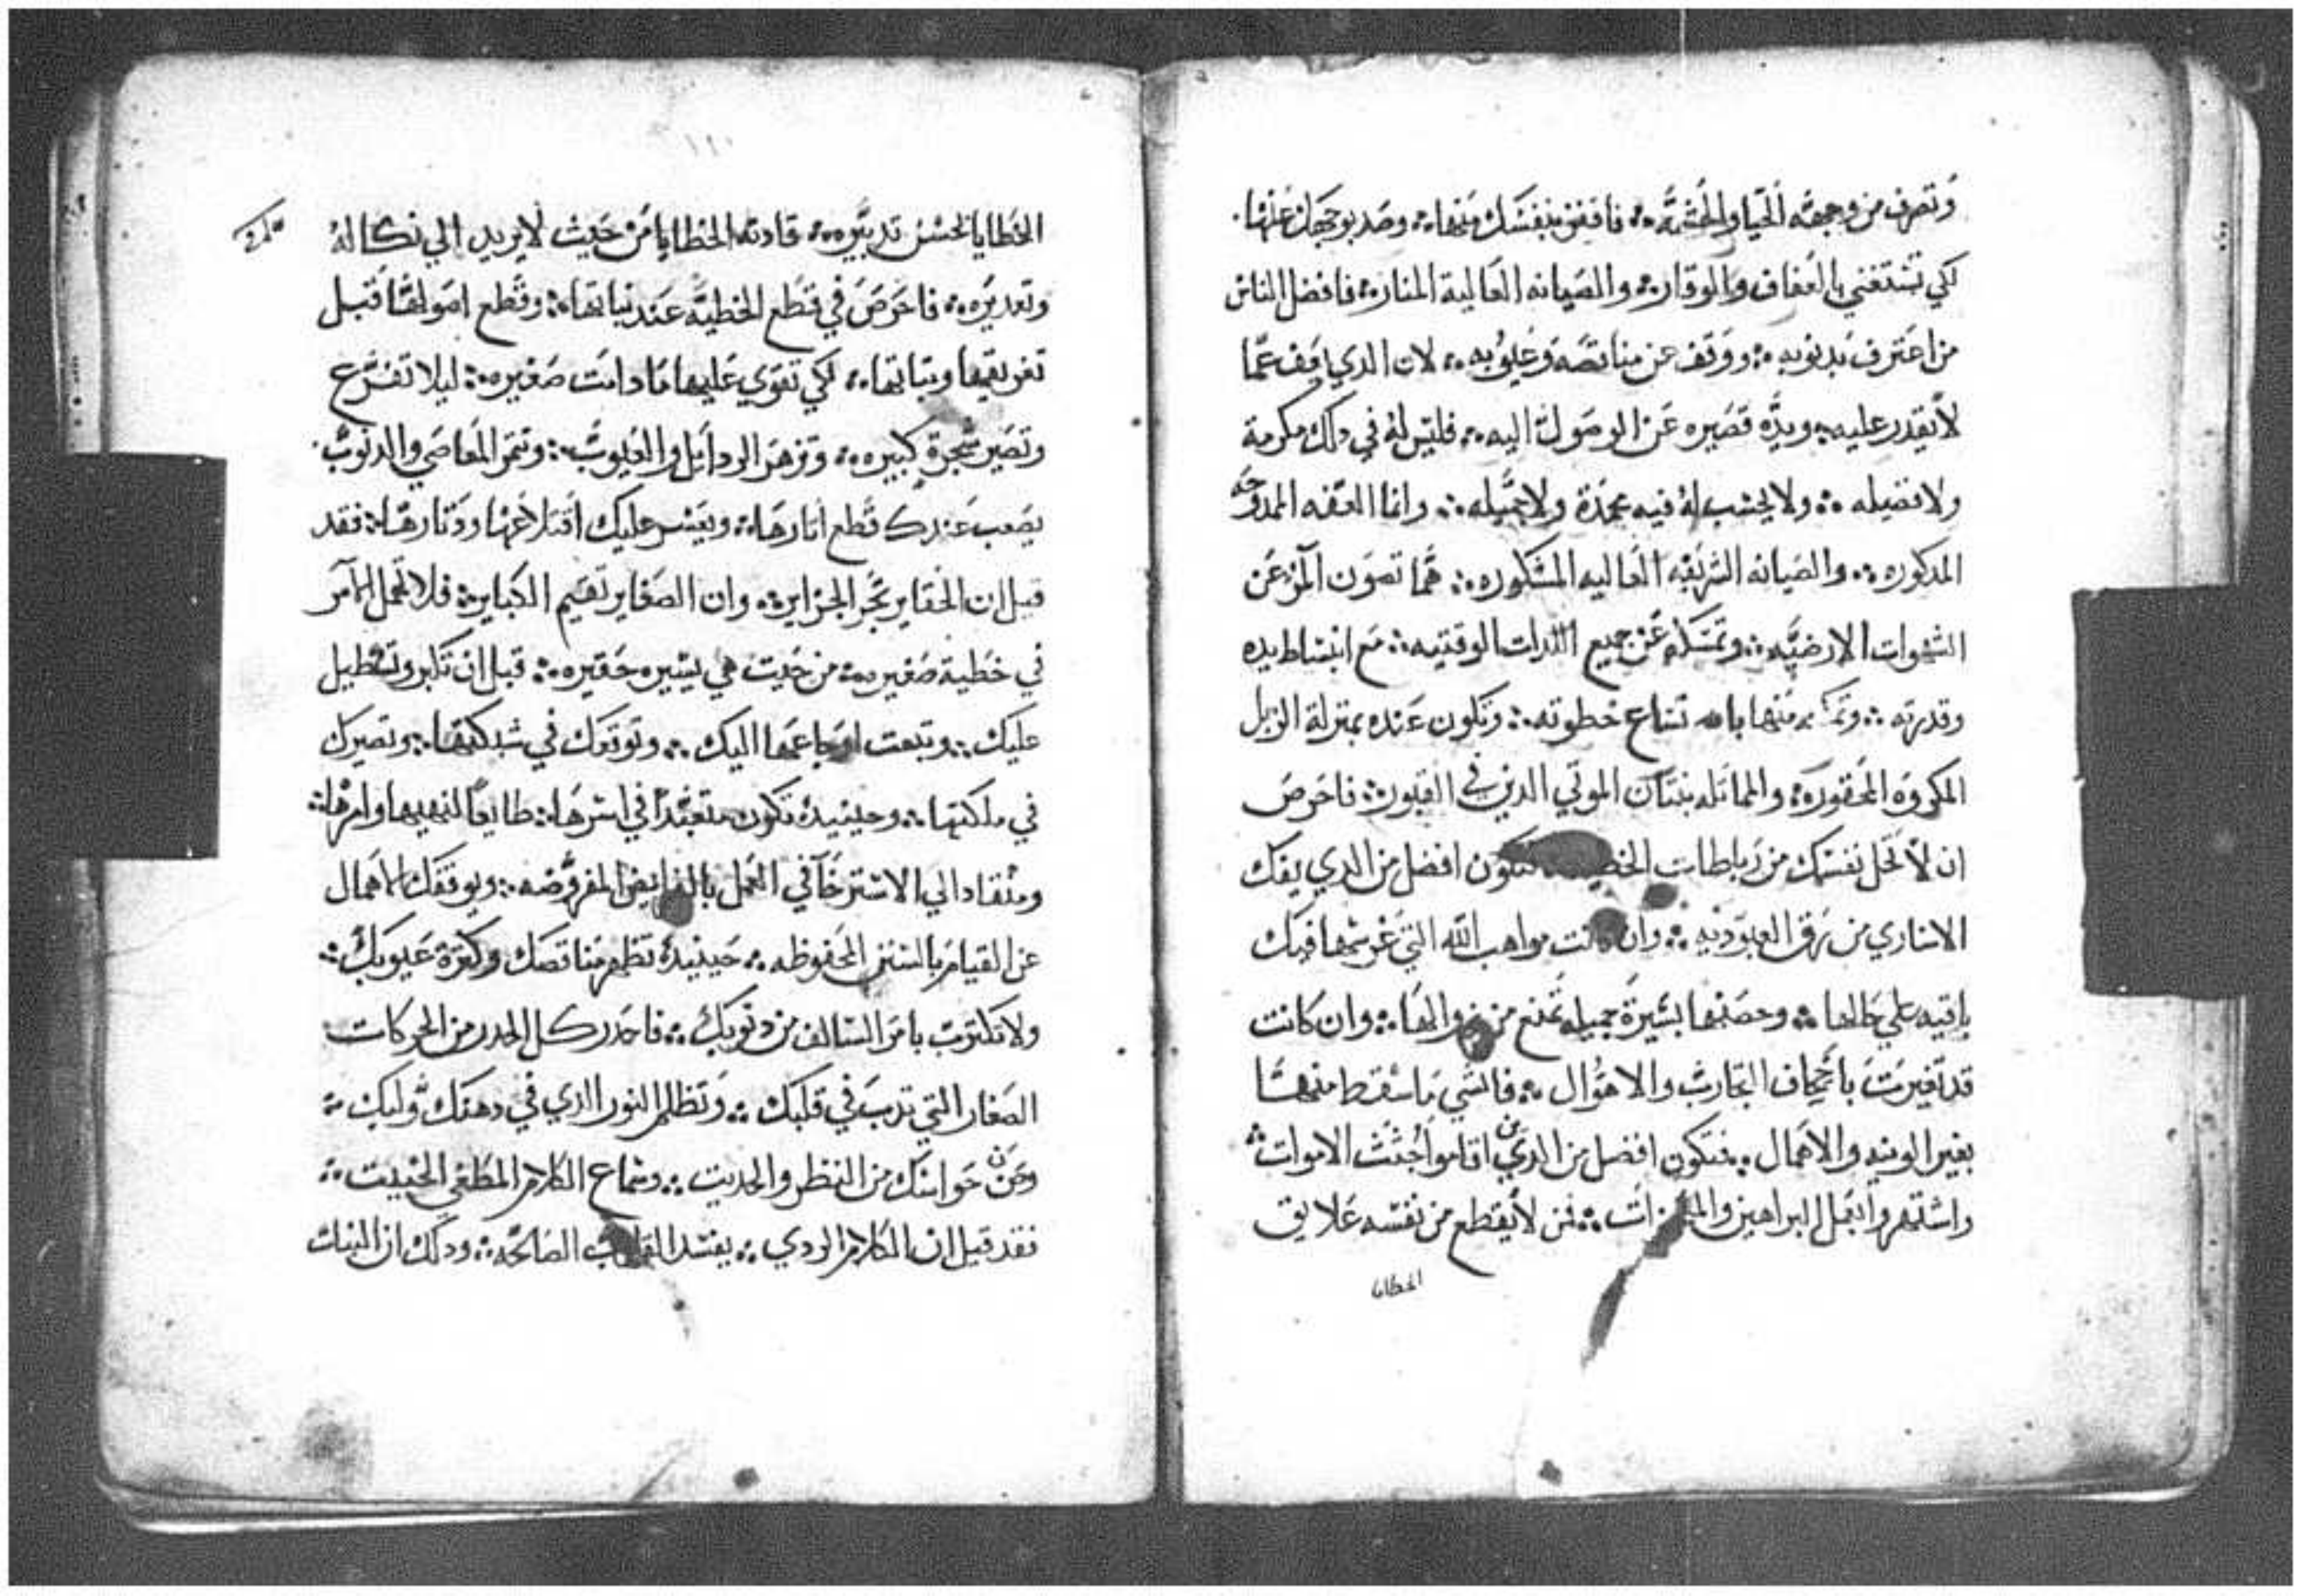 وتصرف من وجهه الحيا والحشمه ؞ فاقنن بنفسك منها ؞ وصد بوجهك عنها ؞
لكي تستغني بالعفاف والوقار ؞ والصيانه العالية المنار ؞ فافضل الناس
من اعترف بدنوبه ؞ ووقف عن مناقصه وعيوبه ؞ لان الدي يقف عما
لا يقدر عليه ؞ ويده قصيره عن الوصول اليه ؞ فليس له في دلك مكرمة
ولا فضيله ؞ ولا يحسب له فيه محمدة ولا جميله ؞ وانما العفه الممدوحه
المدكوره ؞ والصيانه الشريفه العاليه المشكوره ؞ هما تصون المر عن
الشهوات الارضيه ؞ وتمسكه عن جميع اللدات الوقتيه ؞ مع انبساط يده
وقدرته ؞ منها باتساع خطوته ؞ وتكون عنده بمنزلة الزبل
المكروه المحقوره ؞ والمماتله بنتان الموتي الدين في القبور ؞ فاحرص
ان لا تحل نفسك من رباطات فتكون افضل من الدي يفك
الاساري من رق العبوديه ؞ وان كانت مواهب الله التي غرسها فيك
باقيه علي حالها ؞ وحصنها بسيرة جميله تمنع من زوالها ؞ وان كانت
قد تغيرت باجحاف التجارب والاهوال ؞ فانشي ما سقط منها
بغير الونيه والاهمال ؞ فتكون افضل من الدين اقاموا جتت الاموات ؞
واشتهروا بعمل البراهين ؞ فمن لا يقطع من نفسه علايق
الخطايا
١١٠
الخطايا بحسن تدبيره ؞ قادته الخطايا من حيت لا يريد الي نكاله
وتعديره ؞ فاحرص في قطع الخطيه عند نباتها ؞ وقطع اصولها قبل
تفريقها وتباتها ؞ لكي تقوي عليها ما دامت صغيره ؞ ليلا تفرع
وتصير شجرة كبيره ؞ وتزهر الردايل والعيوب ؞ وتتمر المعاصي والدنوب ؞
يصعب عندك قطع اتارها ؞ ويعسر عليك اقتلاعها ودتارها ؞ فقد
قيل ان الحقاير تجر الجزاير ؞ وان الصغاير تقيم الكباير ؞ فلا تهمل الامر
في خطية صغيره ؞ من حيت هي يسيره حقيره ؞ قبل ان تكبر وتستطيل
عليك ؞ وتبعت اوجاعها اليك ؞ وتوتقك في شبكتها ؞ وتصيرك
في ملكتها ؞ وحينيد تكون متعبدا في اسرها ؞ طايعا لنهيها وامرها ؞
ومنقاد الي الاسترخا في العمل بالفرايض المفروضه ؞ ويوقفك الاهمال
عن القيام بالسنن المحفوظه ؞ حينيد تظهر مناقصك وكترة عيوبك ؞
ولا تكترت بامر السالف من دنوبك ؞ فاحدر كل الحدر من الحركات
الصغار التي تدب في قلبك ؞ وتظلم النور الدي في دهنك ولبك ؞
وحن حواسك من النظر والحديت ؞ وسماع الكلام المطغي الخبيت ؞
فقد قيل ان الكلام الردي ؞ يفسد القلوب الصالحه ؞ ودلك ان البنات